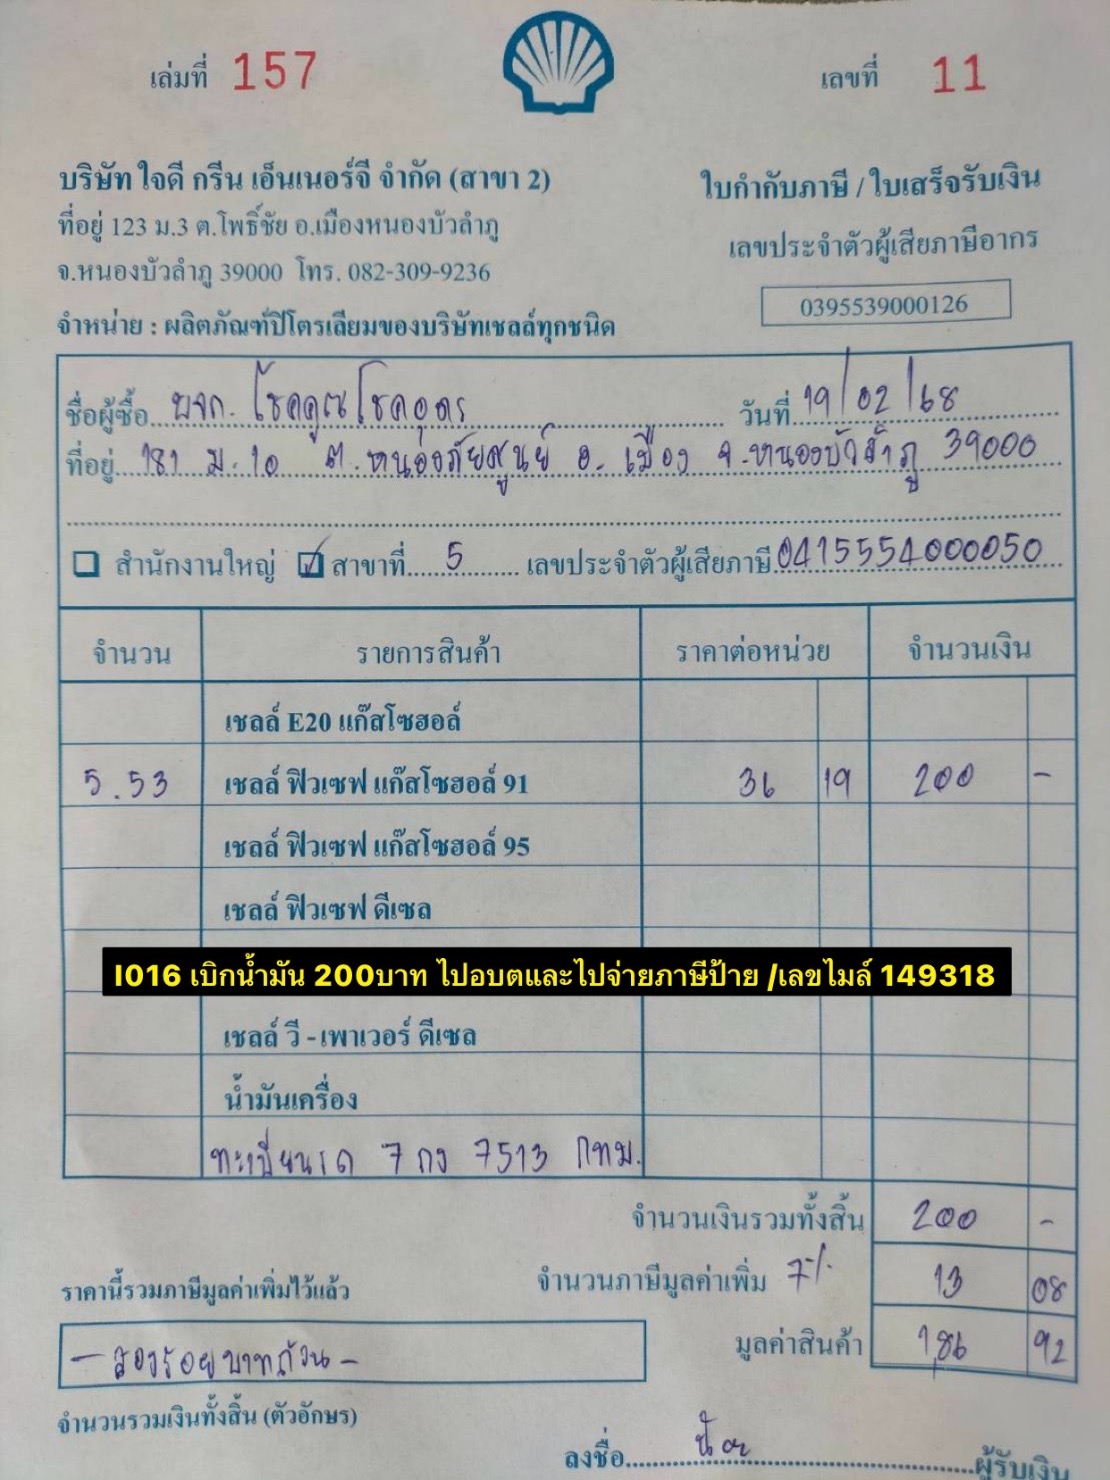 เล่มที่ 157
เลขที่ 11
บริษัท ใจดี กรีน เอ็นเนอร์จี จำกัด (สาขา 2)
ที่อยู่ 123 ม.3 ต.โพธิ์ชัย อ.เมืองหนองบัวลำภู
จ.หนองบัวลำภู 39000 โทร. 082-309-9236
จำหน่าย : ผลิตภัณฑ์ปิโตรเลียมของบริษัทเชลล์ทุกชนิด
ใบกำกับภาษี / ใบเสร็จรับเงิน
เลขประจำตัวผู้เสียภาษีอากร
0395539000126
ชื่อผู้ซื้อ หจก. โชคคูณโชคอุดร วันที่ 19/02/68
ที่อยู่ 181 ม.10 ต.หนองภัยศูนย์ อ.เมือง จ.หนองบัวลำภู 39000
สำนักงานใหญ่ สาขาที่ 5 เลขประจำตัวผู้เสียภาษี 0415554000050
จำนวน รายการสินค้า ราคาต่อหน่วย จำนวนเงิน
เชลล์ E20 แก๊สโซฮอล์
5.53 เชลล์ ฟิวเซฟ แก๊สโซฮอล์ 91 36 19 200 -
เชลล์ ฟิวเซฟ แก๊สโซฮอล์ 95
เชลล์ ฟิวเซฟ ดีเซล
I016 เบิกน้ำมัน 200บาท ไปอบตและไปจ่ายภาษีป้าย /เลขไมล์ 149318
เชลล์ วี - เพาเวอร์ ดีเซล
น้ำมันเครื่อง
ทะเบียนรถ 7 กง 7513 กทม.
จำนวนเงินรวมทั้งสิ้น 200 -
ราคานี้รวมภาษีมูลค่าเพิ่มไว้แล้ว จำนวนภาษีมูลค่าเพิ่ม 7% 13 08
มูลค่าสินค้า 186 92
- สองร้อยบาทถ้วน -
จำนวนรวมเงินทั้งสิ้น (ตัวอักษร)
ลงชื่อ ผู้รับเงิน